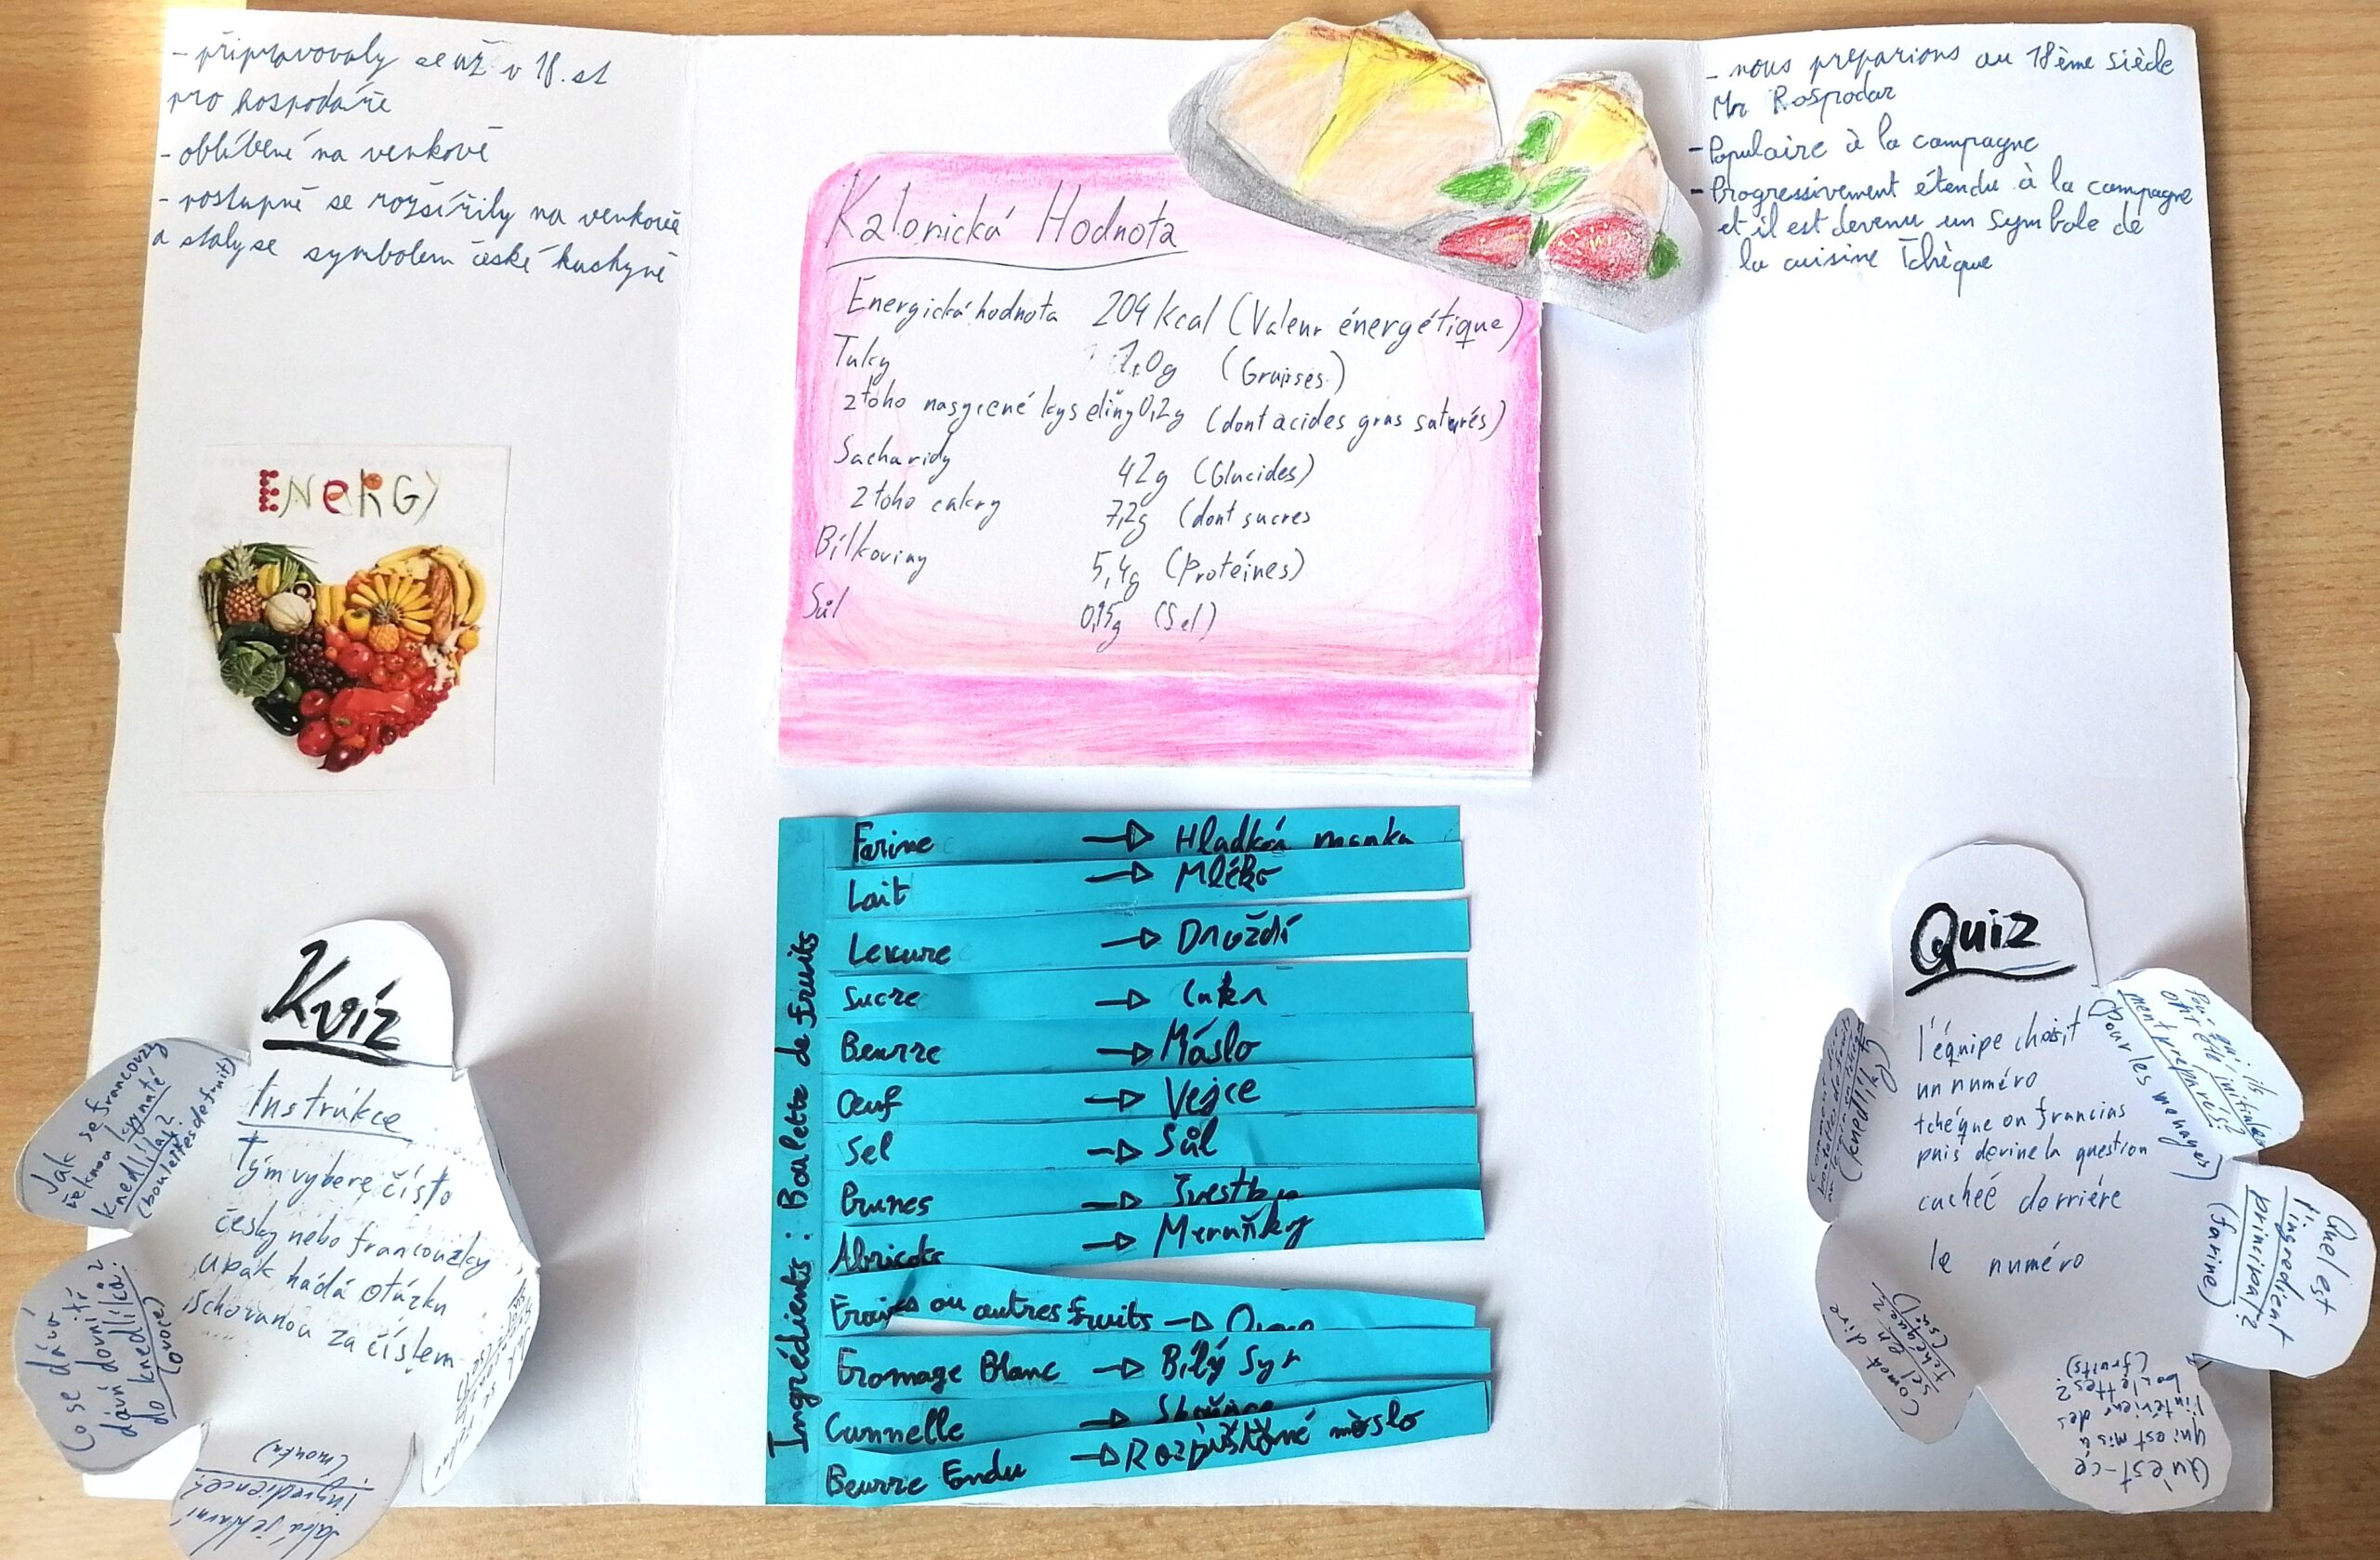 - připravovaly se už v 18. st
pro hospodáře
- oblíbené na venkově
- postupně se rozšířily na venkově
a staly se symbolem české kuchyně
ENERGY
Kvíz
Instrukce
Tým vybere číslo
česky nebo francouzky
a pak hádá otázku
schovanou za číslem
Jak se francouzy
řeknou kynuté
knedlíky?
(boulettes de fruit)
Co se dává
dávní dovnitř
do knedlíků?
(ovoce)
Jaká je hlavní
ingredience?
(mouka)
Kalorická Hodnota
Energická hodnota 204 kcal (Valeur énergétique)
Tuky 1,0g (Graisses)
z toho nasycené kyseliny 0,2g (dont acides gras saturés)
Sacharidy 42g (Glucides)
z toho cukry 7,2g (dont sucres
Bílkoviny 5,4g (Protéines)
Sůl 0,15g (Sel)
Ingrédients : Boulette de fruits
Farine → Hladká mouka
Lait → Mléko
Levure → Droždí
Sucre → Cukr
Beurre → Máslo
Œuf → Vejce
Sel → Sůl
Prunes → Švestky
Abricots → Meruňky
Fraises ou autres fruits →
Fromage Blanc → Bílý Syr
Cannelle → Skořice
Beurre Fondu → Rozpuštěné máslo
- nous préparions au 18ème siècle
Mr Hospodar
- Populaire à la campagne
- Progressivement étendu à la campagne
et il est devenu un symbole de
la cuisine Tchèque
Quiz
l'équipe choisit
un numéro
tchéque ou francias
puis devine la question
cacheé derriére
le numéro
Pour qui, ils
ont été initiale
ment preparés?
(pour les menages)
Quel est
l'ingredient
principal?
(farine)
Qu'est-ce
qui est mis à
l'intérieur des
boulettes?
(fruits)
Coment dire
sel en
tchéque?
(sůl)
(knedlíky)